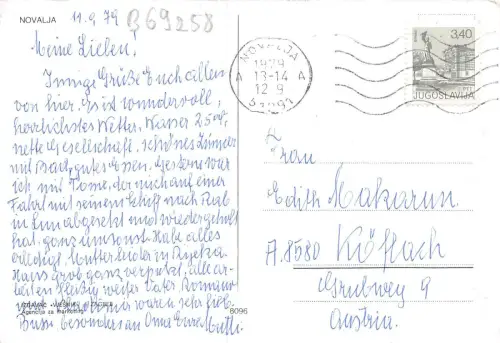 NOVALJA
11.9.79
B69258
Meine Lieben!
Innige Grüße Euch allen
von hier. Es ist wundervoll,
herzlichstes Wetter, Wasser 25°,
nette Gesellschaft, schönes Zimmer
mit Bad, gutes Essen. Gestern war
ich mit Tome, der mich auf einer
Fahrt mit seinem Schiff nach Rab
in Lun abgesetzt und wieder geholt
hat. ganz umsonst. Habe alles
erledigt. Mutter leider in Rijeka
Haus grob ganz verputzt, alle ar-
beiten fleißig weiter. Vater
waren sehr lieb.
Bussi besonders an Oma Eure Mutti.
Agencija za marketing
8096
NOVALJA
1979
13-14
12 9
51291
3,40
JUGOSLAVIJA
Frau
Edith Makarun
A. 8580 Köflach
Grubweg 9
Austria.